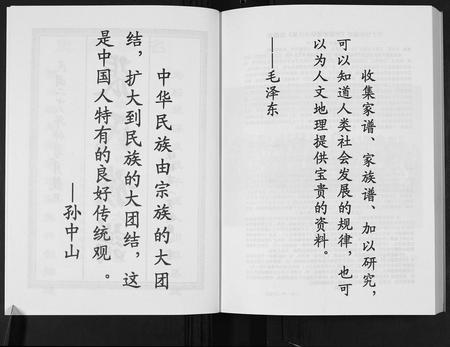 收集家谱、家族谱、加以研究，
可以知道人类社会发展的规律，也可
以为人文地理提供宝贵的资料。
——毛泽东
中华民族由宗族的大团
结，扩大到民族的大团结，这
是中国人特有的良好传统观。
——孙中山